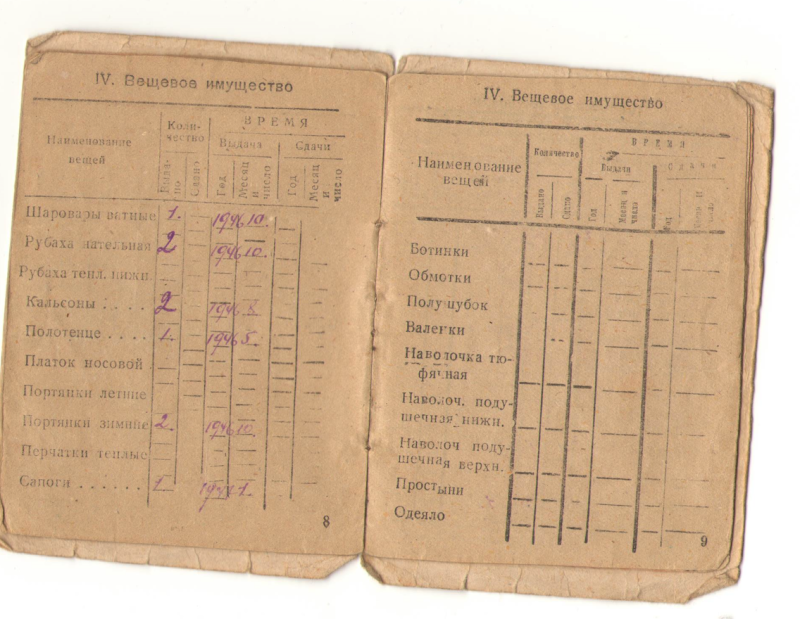 IV. Вещевое имущество
Наименование вещей
Коли-
чество
ВРЕМЯ
Выдача
Сдачи
Выда-
но
Сдано
Год
Месяц и число
Год
Месяц и число
Шаровары ватные 1. 1946 10.
Рубаха нательная 2 1946 10.
Рубаха тепл. нижн.
Кальсоны . . . . 2 1946
Полотенце . . . 1. 1946 5.
Платок носовой
Портянки летние
Портянки зимние 2. 1946 10.
Перчатки теплые
Сапоги . . . . . . 1
8
IV. Вещевое имущество
Наименование
вещей
Количество
ВРЕМЯ
Выдача
Сдачи
Выдано
Сдано
Год
Месяц и
число
Год
Ботинки
Обмотки
Полушубок
Валенки
Наволочка тю-
фячная
Наволоч. поду-
шечная нижн.
Наволоч поду-
шечная верхн.
Простыни
Одеяло
9